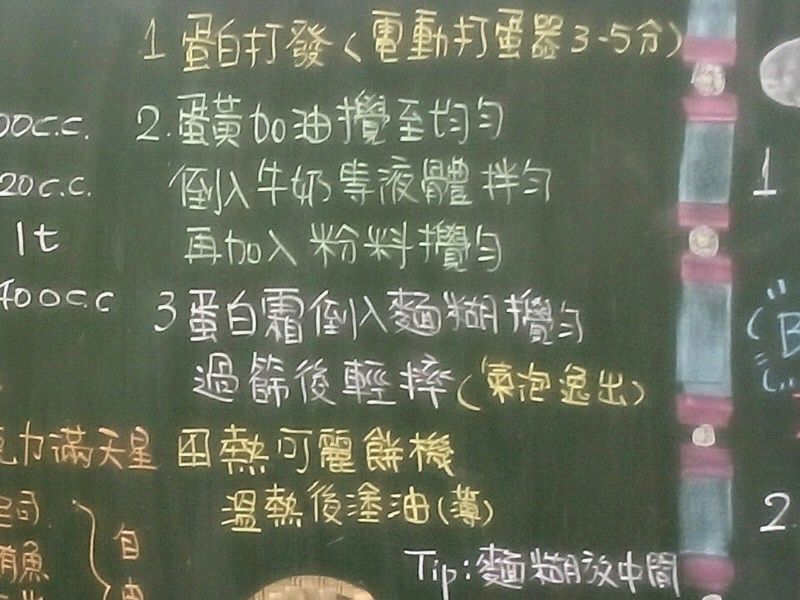 1 蛋白打發(電動打蛋器3-5分)
2.蛋黃加油攪至均勻
倒入牛奶等液體拌勻
再加入粉料攪勻
3 蛋白霜倒入麵糊攪勻
過篩後輕摔(氣泡逸出)
四熱可麗餅機
溫熱後塗油(薄)
Tip:麵糊放中間
00c.c.
20c.c.
1t
400c.c
力滿天星
司
鮪魚
自
1
B
2